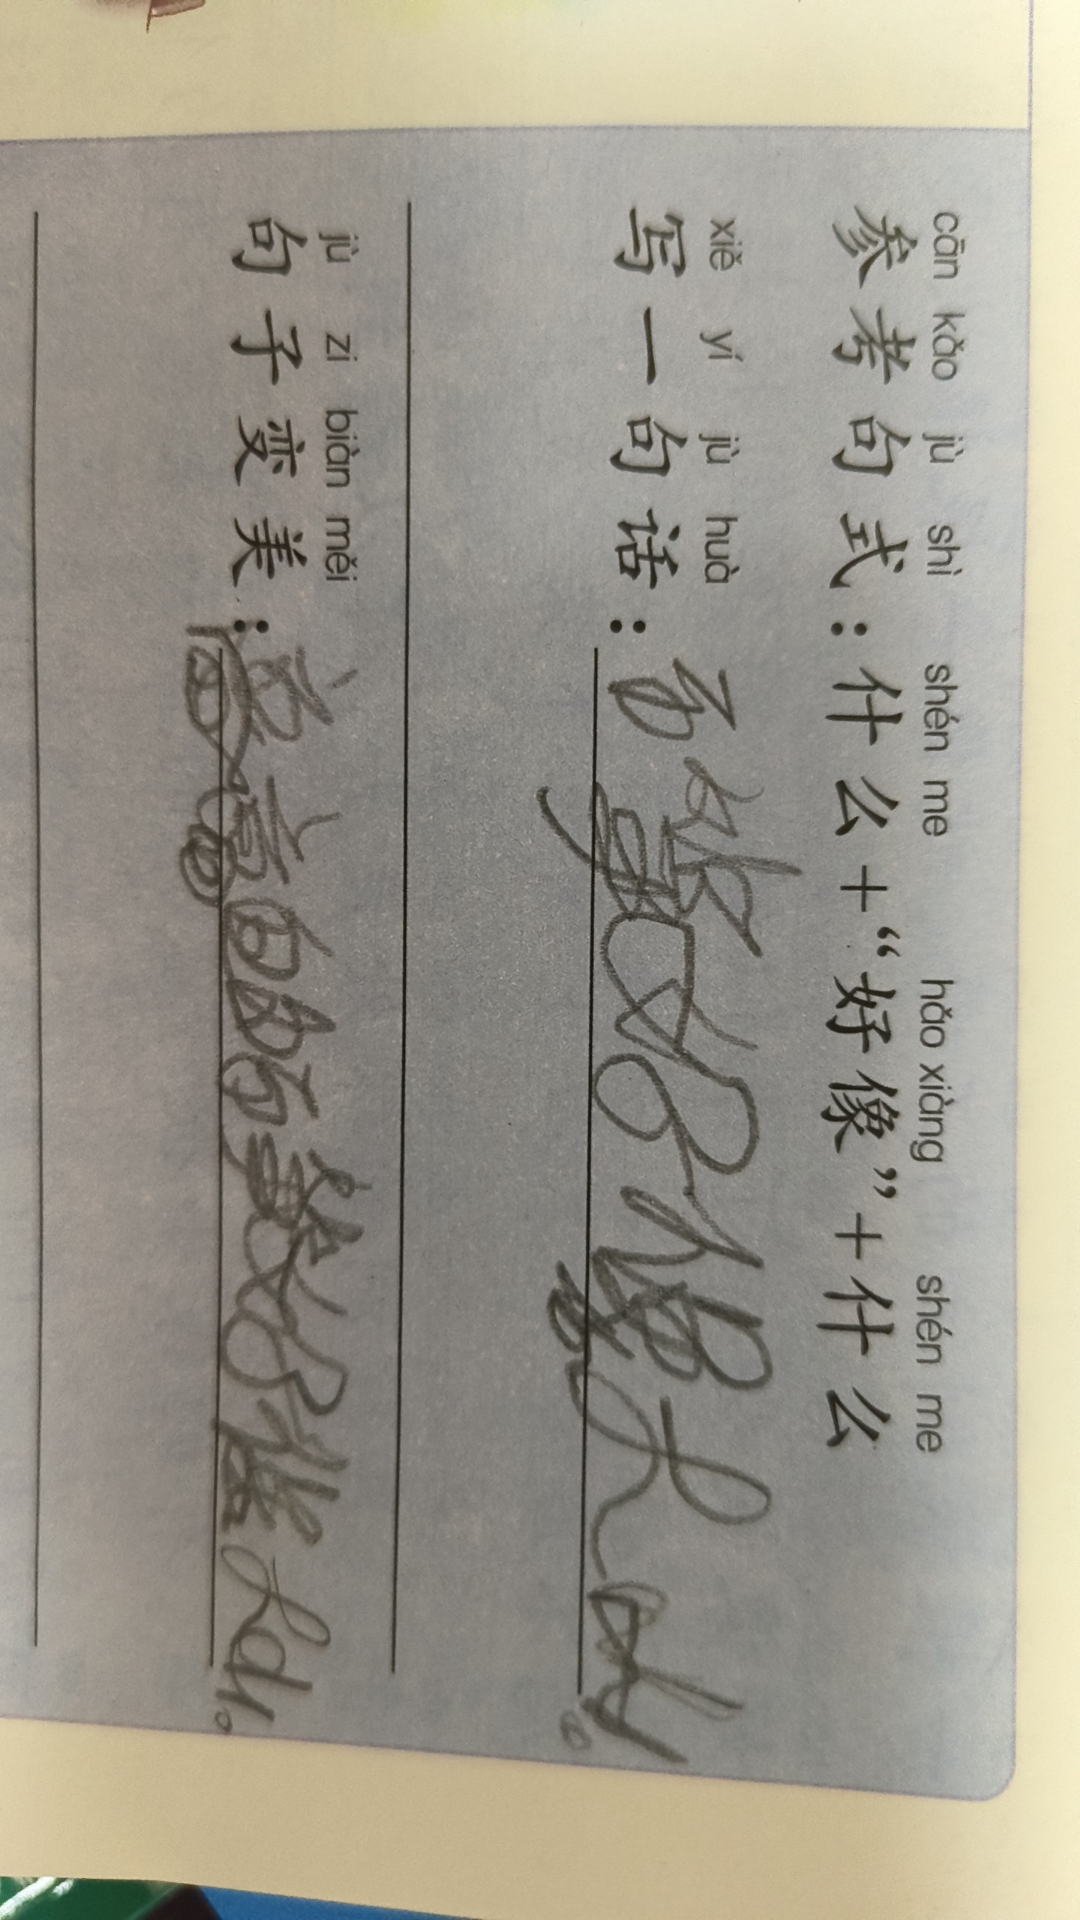 cān kǎo jù shì shén me hǎo xiàng shén me
参考句式：什么＋“好像”＋什么
xiě yí jù huà
写一句话：石效好像火山。
jù zi biàn měi
句子变美：高高的石效好像火山。